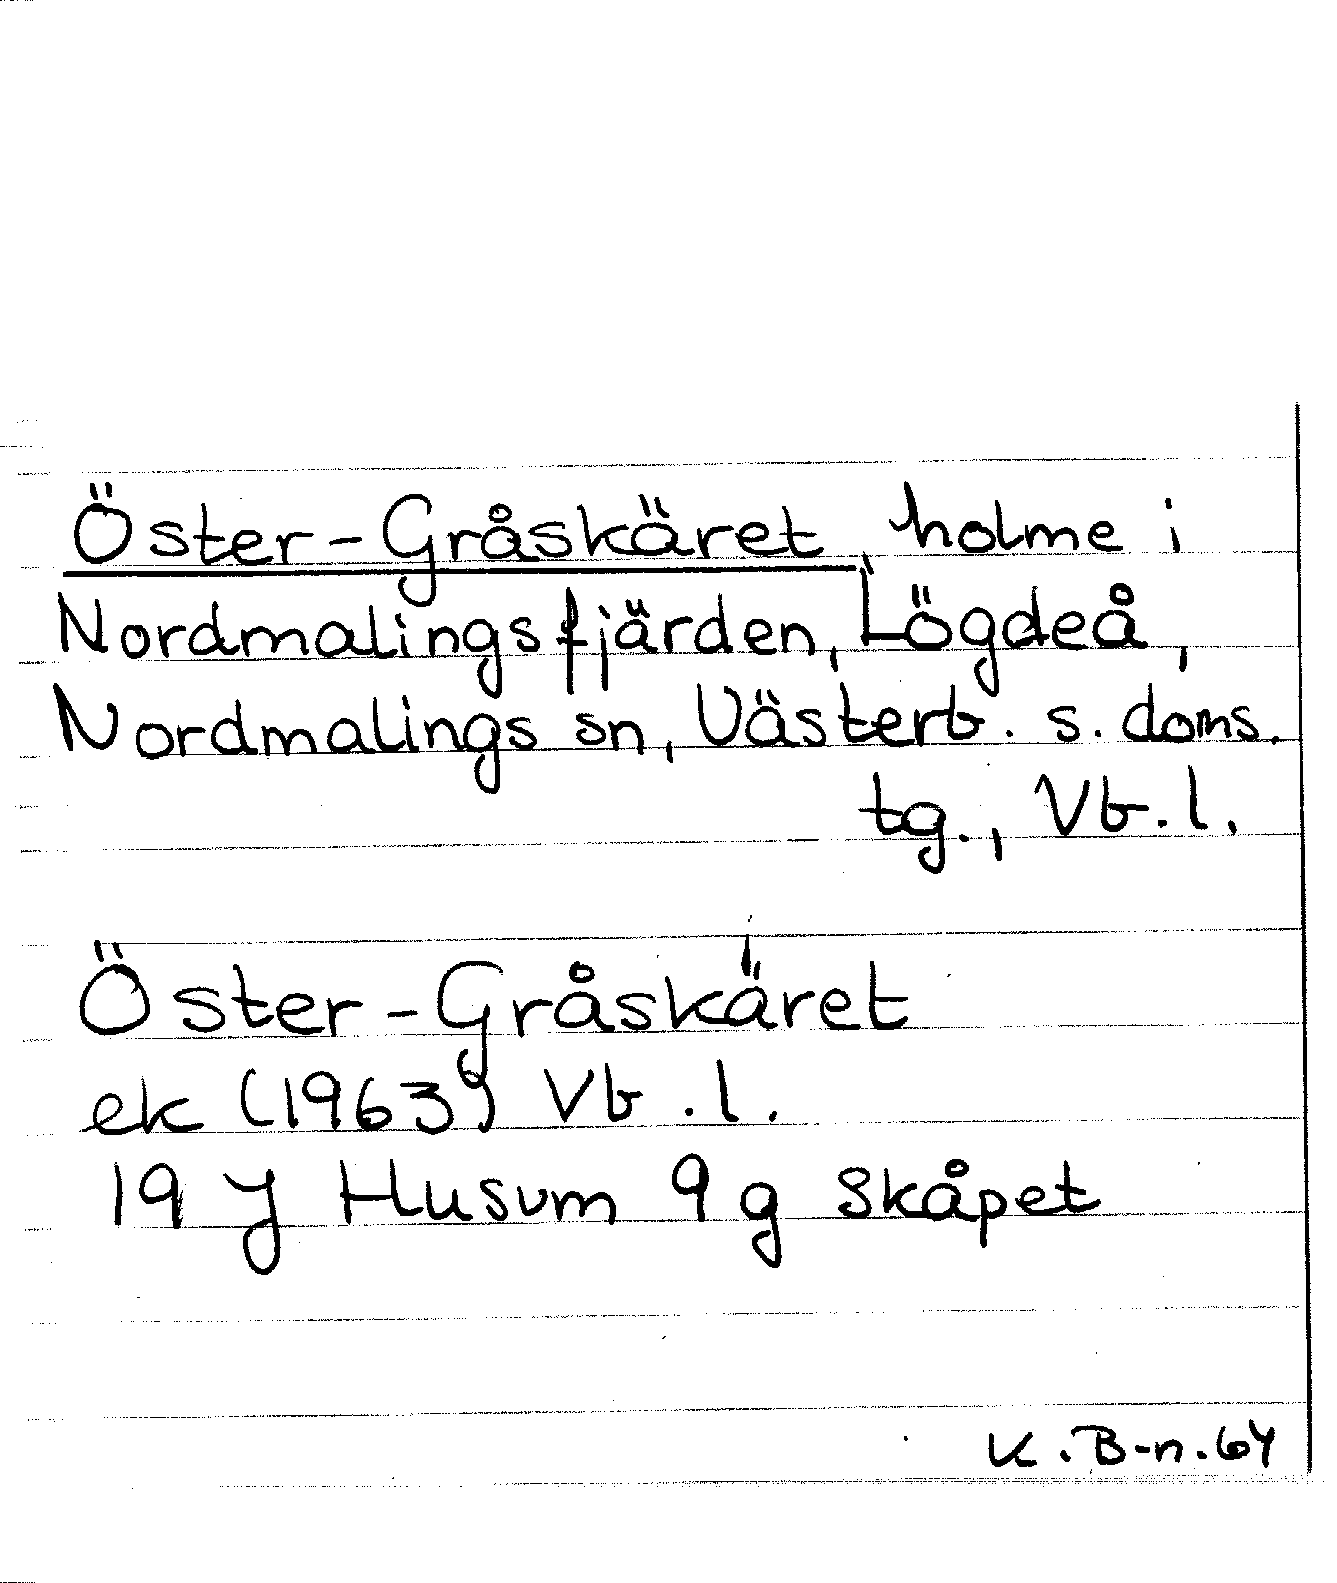 Öster-Gråskäret, holme i
Nordmalingsfjärden, Lögdeå,
Nordmalings sn, Västerb. s. doms.
tg., Vb.l.
Öster-Gråskäret
ek (1963) Vb.l.
19 J Husum 9 g Skåpet
K.B-n.64